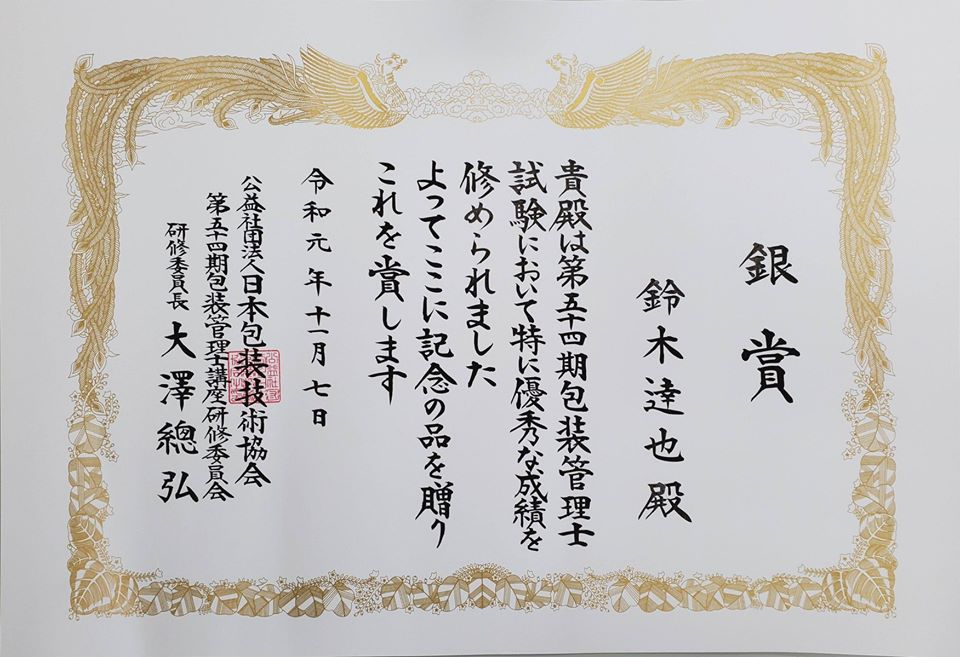 銀賞
鈴木達也殿
貴殿は第五十四期包装管理士
試験において特に優秀な成績を
修められました
よってここに記念の品を贈り
これを賞します
令和元年十一月七日
公益社団法人日本包装技術協会
第五十四期包装管理士講座研修委員会
研修委員長 大澤總弘